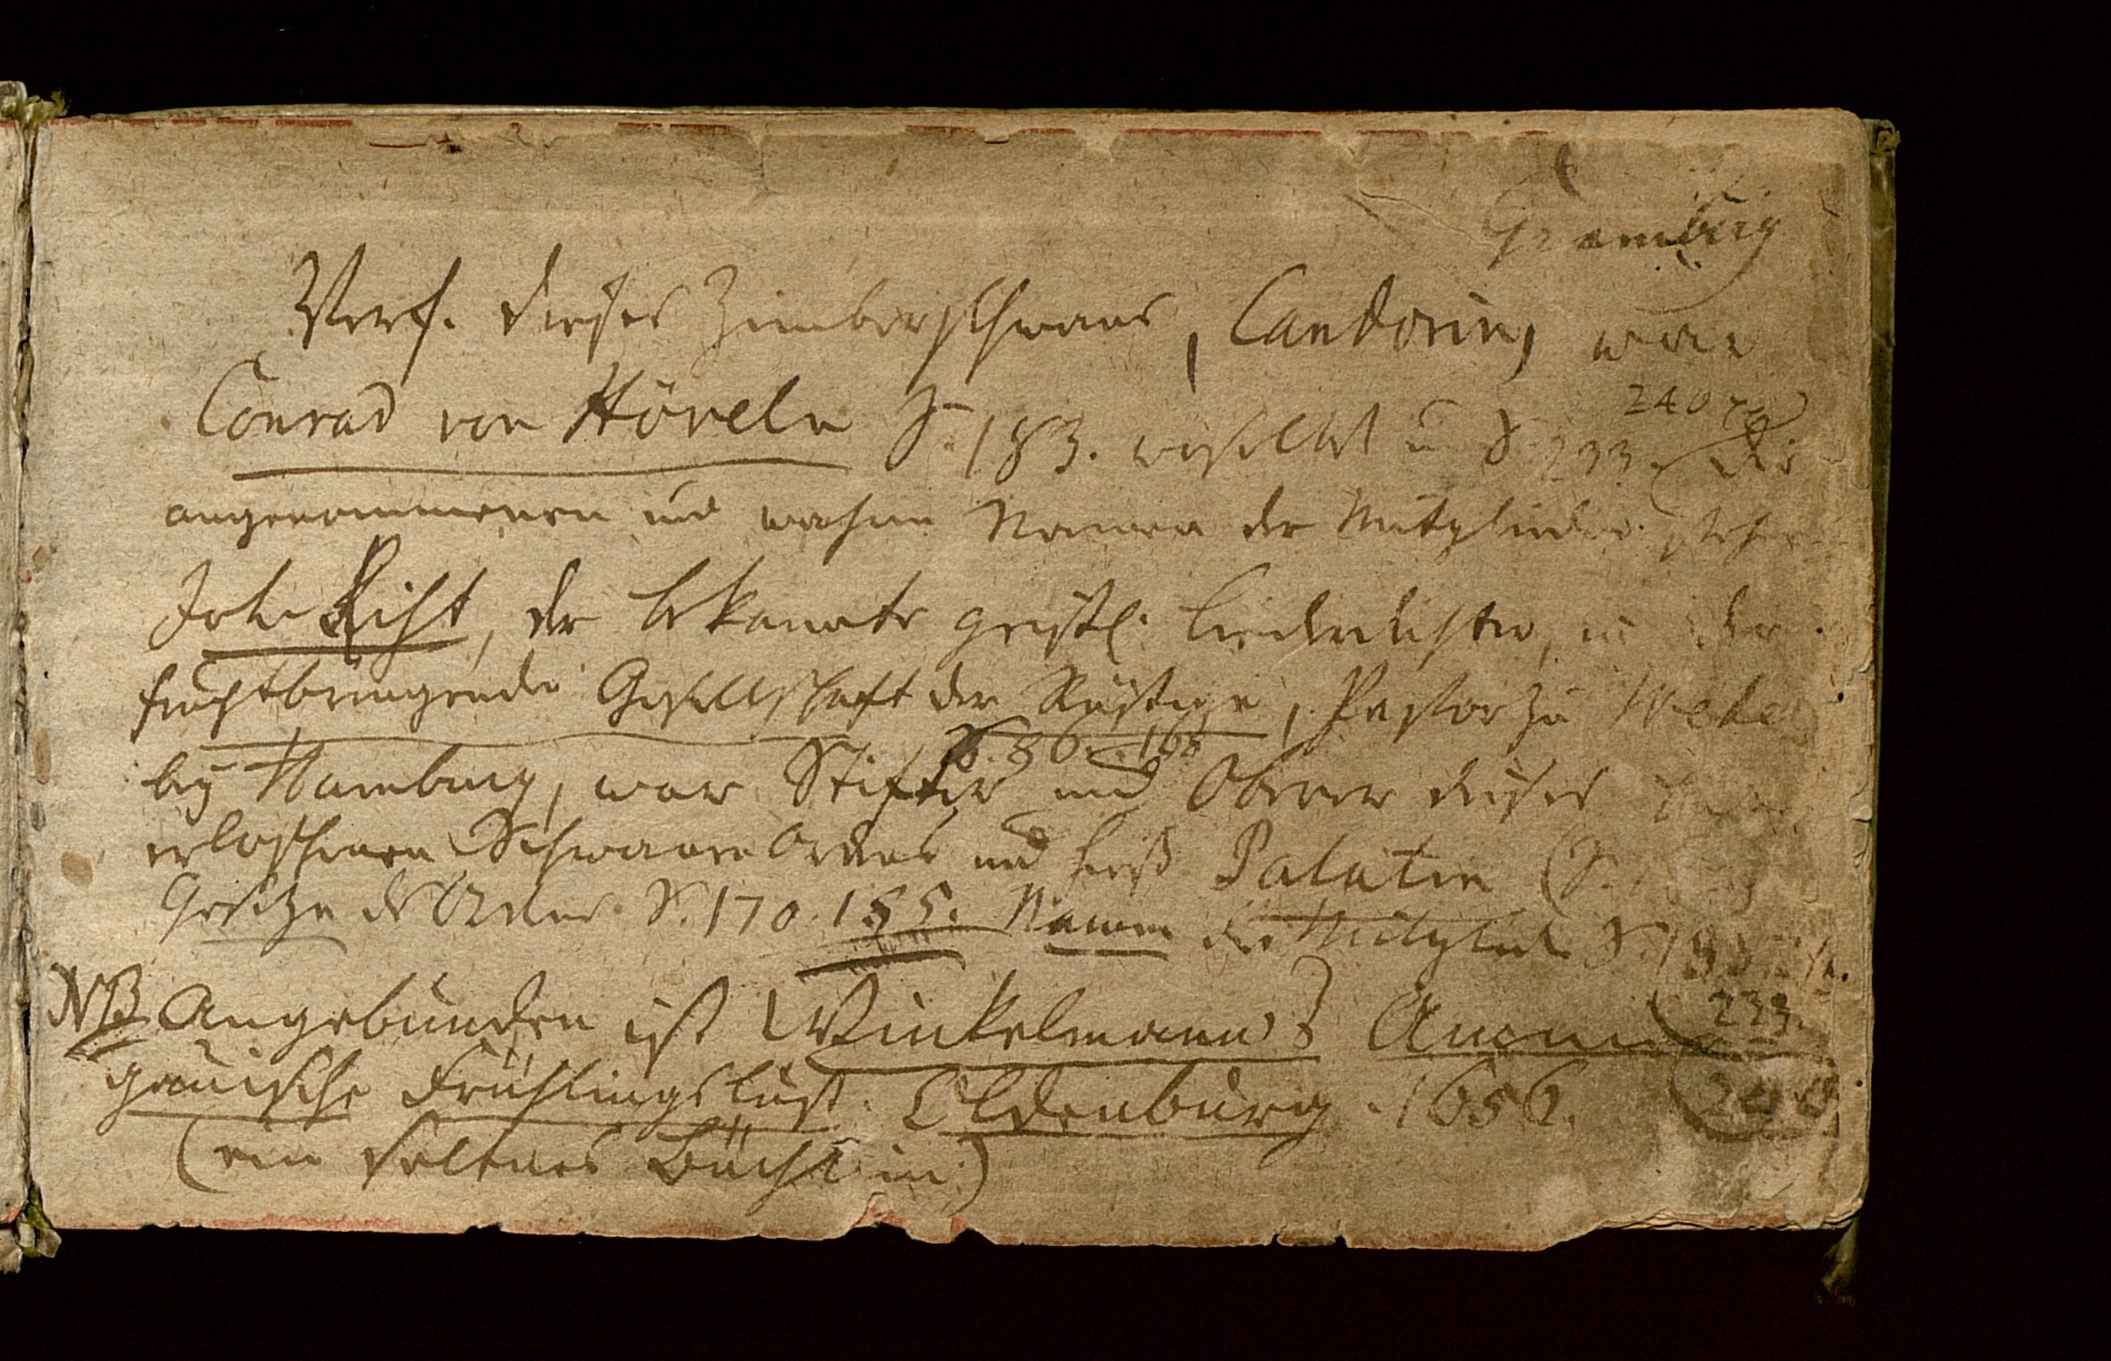 Verf. dieses Zimberschwans, Candorin, war
Conrad von Höveln S. 183. erhellet u S. 233. Die
240
angenommenen und wahren Namen der Mitglieder stehen
Joh. Rist, der bekannte geistl. Liederdichter, in der
fruchtbringende Gesellschaft der Rüstige, Pastor zu Wedel
S. 86. 168
bey Hamburg, war Stifter und Oberer dieses
erloschenen Schwanen Ordens und hieß Palatin (S.
Gesetze des Ordens S. 170. 155. Namen der Mitglieder S.
NB Angebunden ist Winkelmanns Ammer
233.
gauische Frühlingslust. Oldenburg. 1656.
240
(ein seltenes Büchlein)